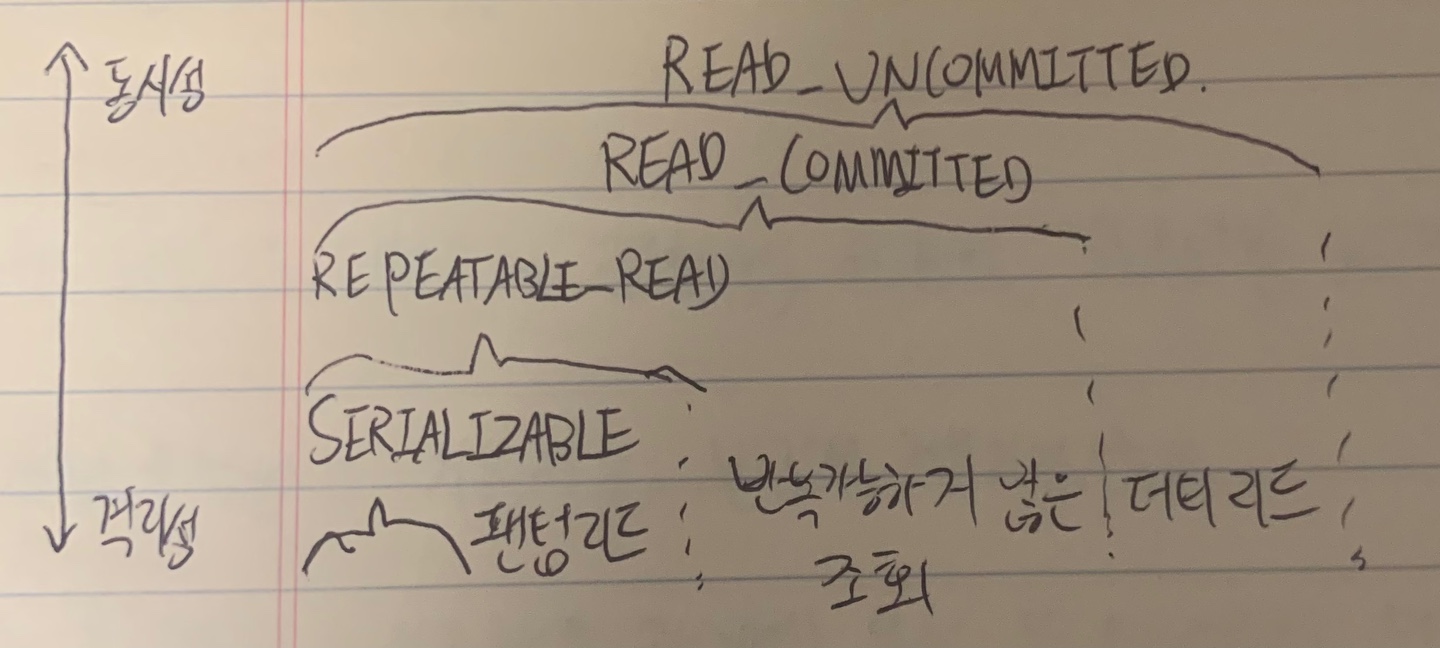 동시성
READ_UNCOMMITTED.
READ_COMMITTED
REPEATABLE_READ
SERIALIZABLE
격리성
팬텀리드
반복가능하거 않은
조회
더티 리드